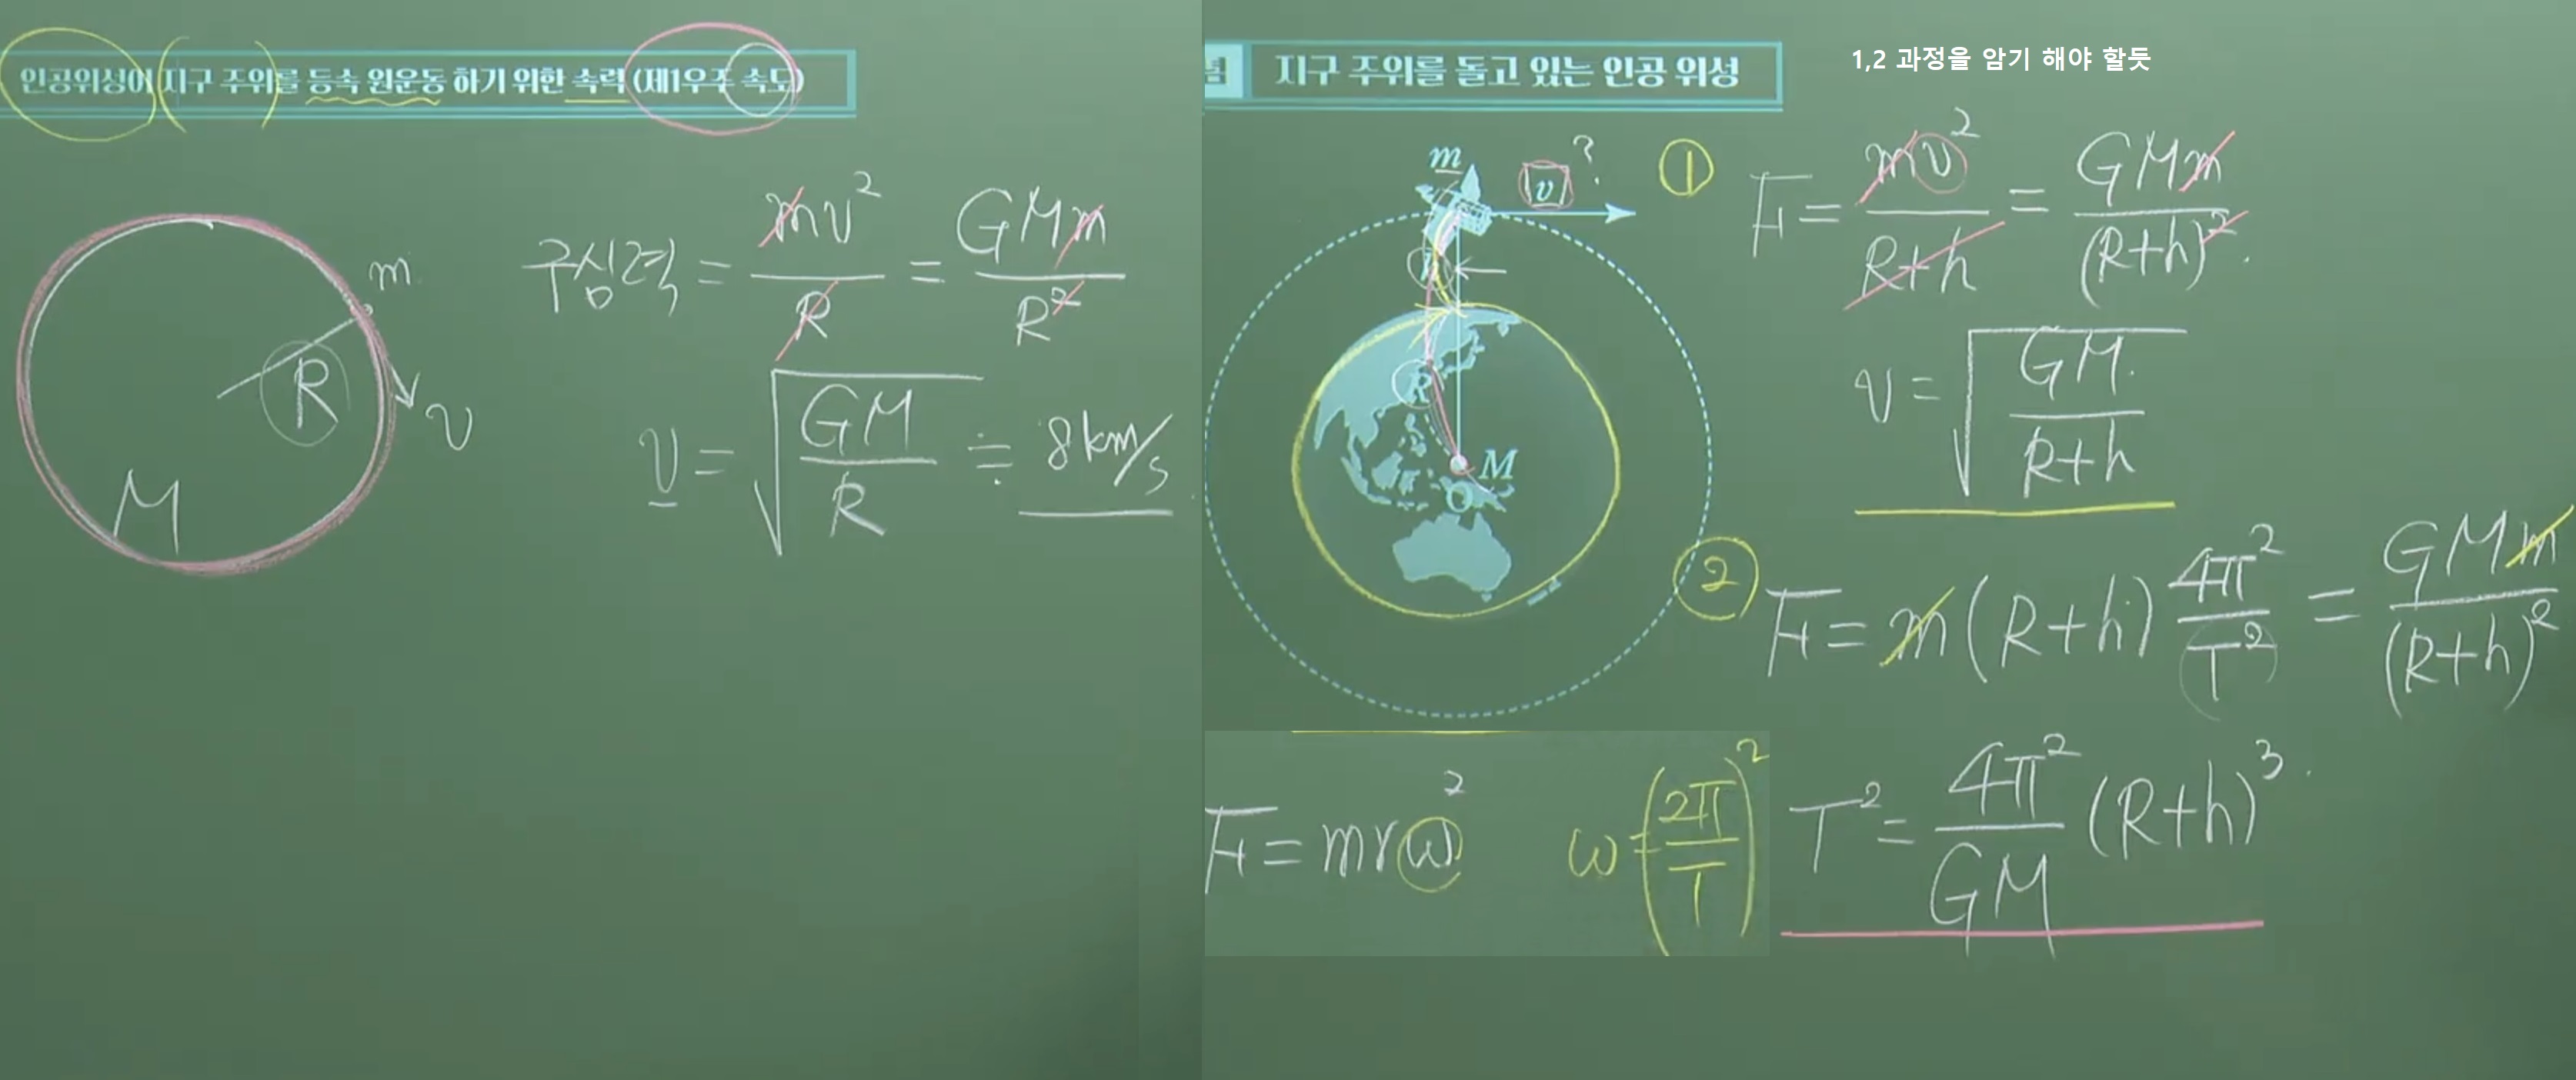 인공위성이 지구 주위를 등속 원운동 하기 위한 속력 (제1우주 속도)
m
R
v
M
구심력 = mv² / R = GMm / R²
v = √(GM / R) ≒ 8km/s
지구 주위를 돌고 있는 인공 위성
1,2 과정을 암기 해야 할듯
m
v ?
R
M
O
① F = mv² / R+h = GMm / (R+h)²
v = √(GM / R+h)
② F = m(R+h) 4π² / T² = GMm / (R+h)²
F = mrω² ω = (2π / T)²
T² = 4π² / GM (R+h)³